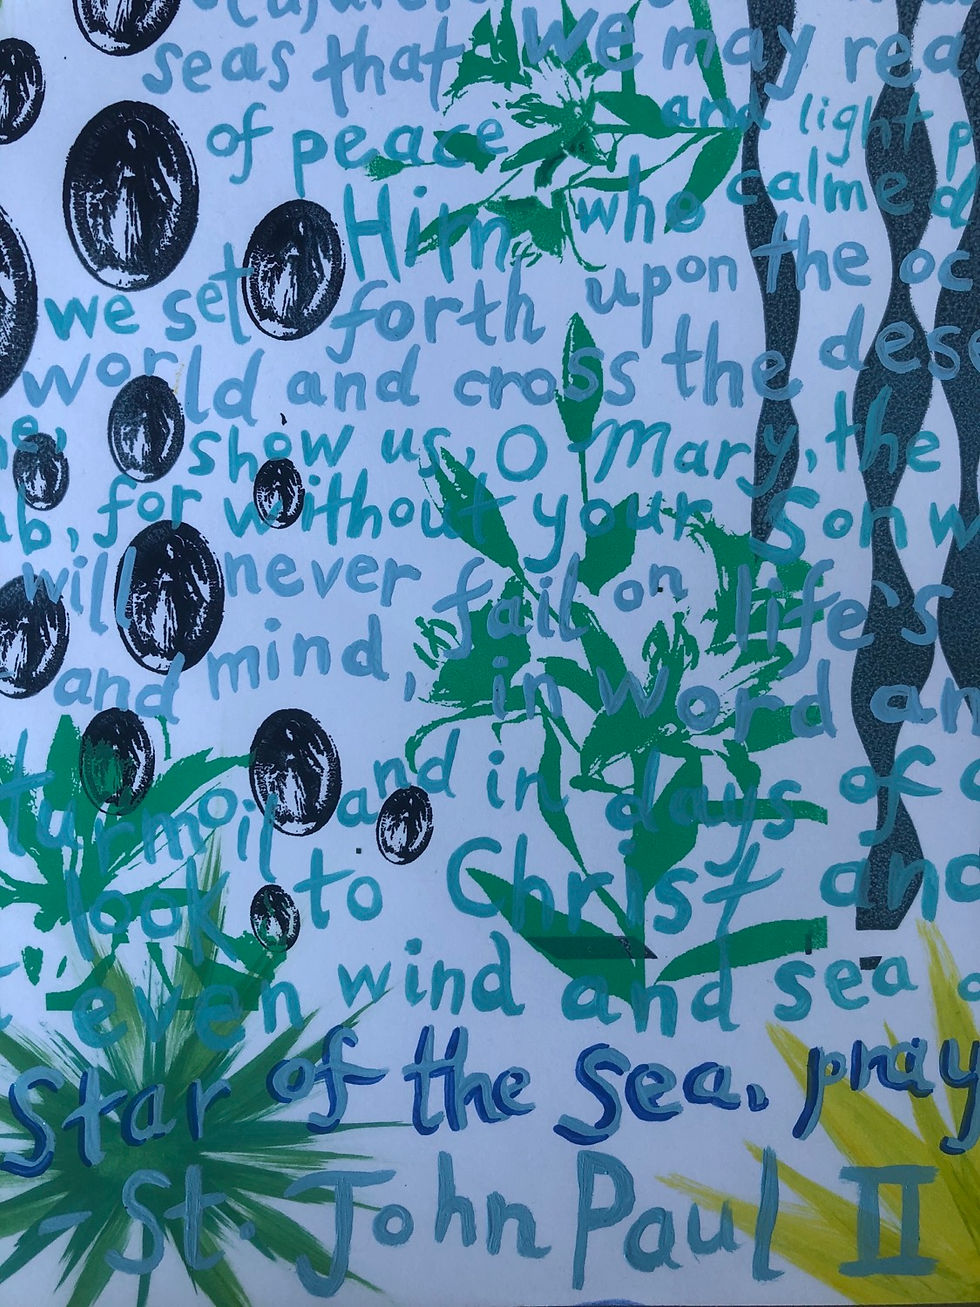 seas that we may rea
of peace and light p
Him, who calmed
we set forth upon the oc
world and cross the dese
ne, show us, O Mary, the
ab, for without your Son w
will never fail on life's
and mind, in word an
turmoil and in days of
look to Christ and
even wind and sea
Star of the Sea, pray
- St. John Paul II